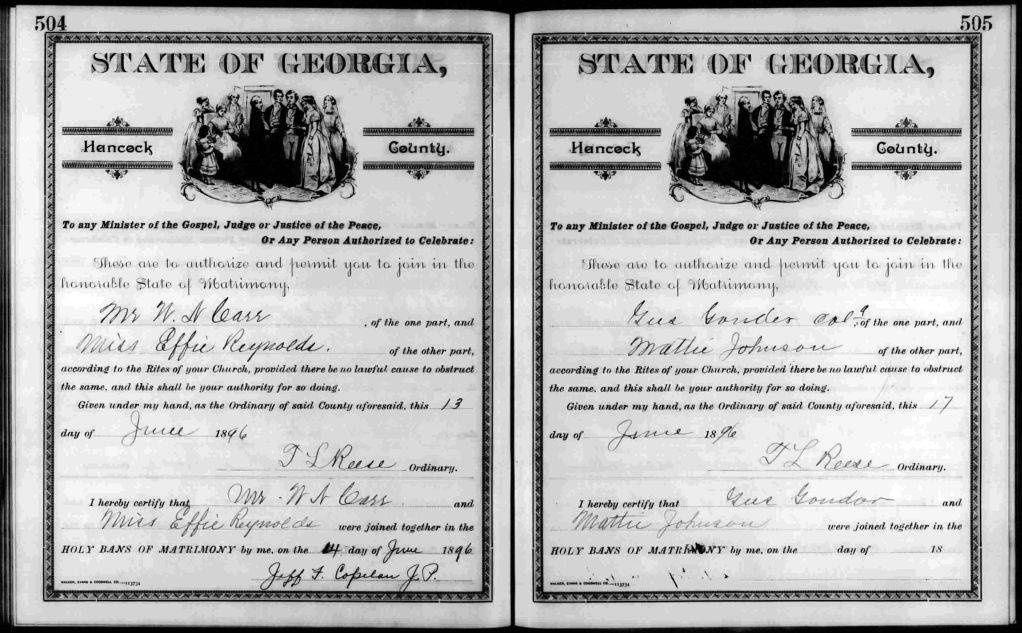 504
STATE OF GEORGIA,
Hancock County.
To any Minister of the Gospel, Judge or Justice of the Peace,
Or Any Person Authorized to Celebrate:
These are to authorize and permit you to join in the
honorable State of Matrimony,
Mr W. N Carr , of the one part, and
Miss Effie Reynolds. of the other part,
according to the Rites of your Church, provided there be no lawful cause to obstruct
the same, and this shall be your authority for so doing.
Given under my hand, as the Ordinary of said County aforesaid, this 13
day of June 1896
T L Reese Ordinary.
I hereby certify that Mr. W N Carr and
Miss Effie Reynolds were joined together in the
HOLY BANS OF MATRIMONY by me, on the 14 day of June 1896
Jeff F. Copelan J.P.
WALKER, EVANS & COGSWELL CO.—113734
505
STATE OF GEORGIA,
Hancock County.
To any Minister of the Gospel, Judge or Justice of the Peace,
Or Any Person Authorized to Celebrate:
These are to authorize and permit you to join in the
honorable State of Matrimony,
Gus Gonder cold , of the one part, and
Mattie Johnson of the other part,
according to the Rites of your Church, provided there be no lawful cause to obstruct
the same, and this shall be your authority for so doing.
Given under my hand, as the Ordinary of said County aforesaid, this 17
day of June 1896
T L Reese Ordinary.
I hereby certify that Gus Gondor and
Mattie Johnson were joined together in the
HOLY BANS OF MATRIMONY by me, on the day of 18
WALKER, EVANS & COGSWELL CO.—113734